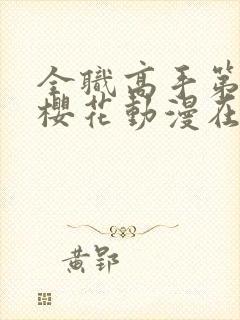 全職高手第
櫻花動漫在
黃郢